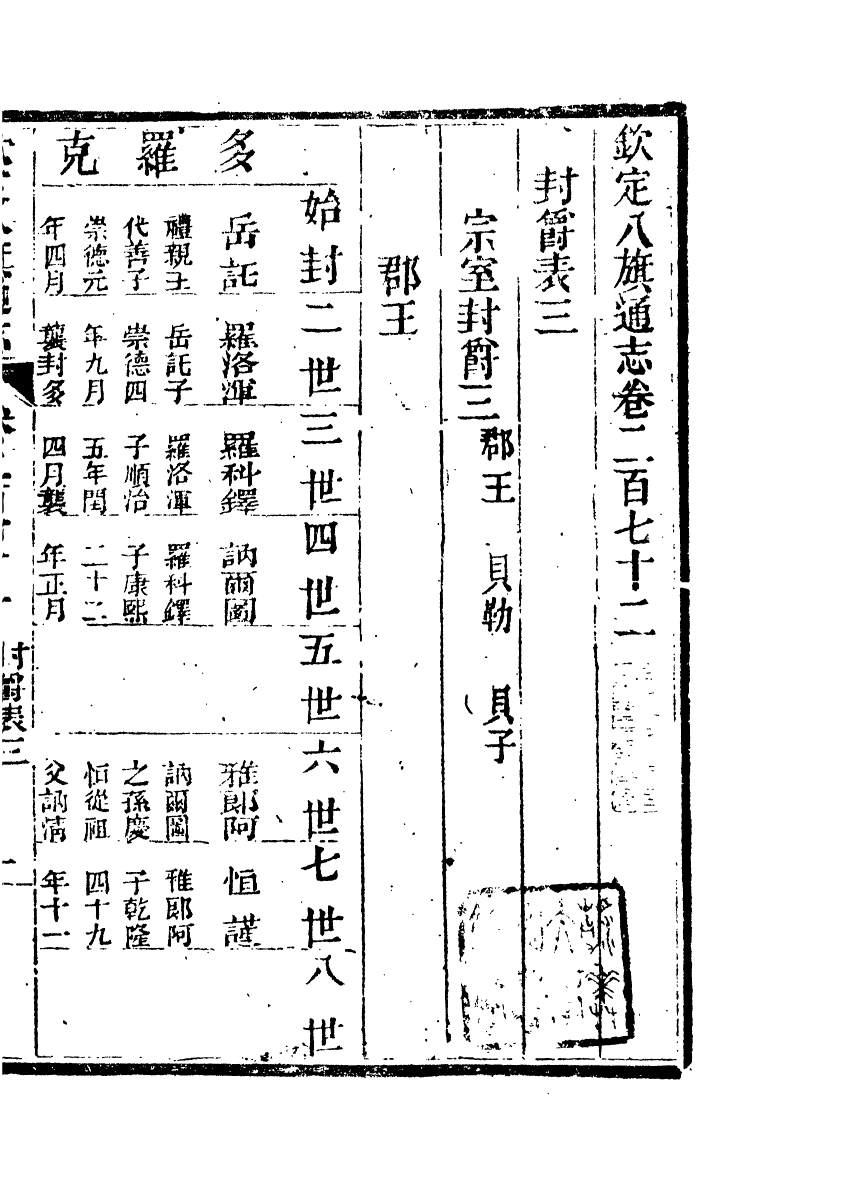 欽定八旗通志卷二百七十二
封爵表三
宗室封爵三 郡王 貝勒 貝子
郡王
始封 二世 三世 四世 五世 六世 七世 八世
多羅克
岳託
禮親王
代善子
崇德元
年四月
羅洛渾
岳託子
崇德四
年九月
襲封多
羅科鐸
羅洛渾
子順治
五年閏
四月襲
訥爾圖
羅科鐸
子康熙
二十二
年正月
雅郎阿
訥爾圖
之孫慶
恒從祖
父訥清
恒謹
雅郎阿
子乾隆
四十九
年十二
封爵表三